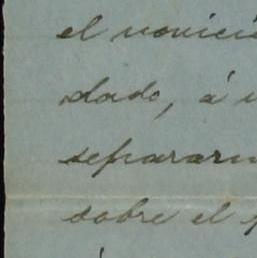 el novici
dado, á
separarm
sobre el